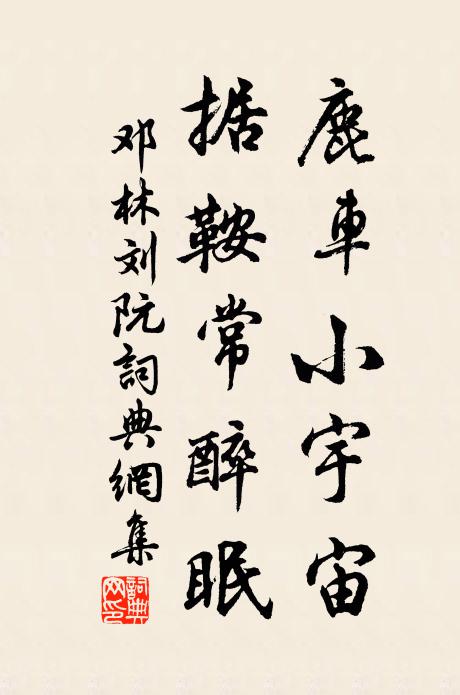 鹿車小宇宙
据鞍常醉眠
邓林刘阮詞典網集
詞典网印